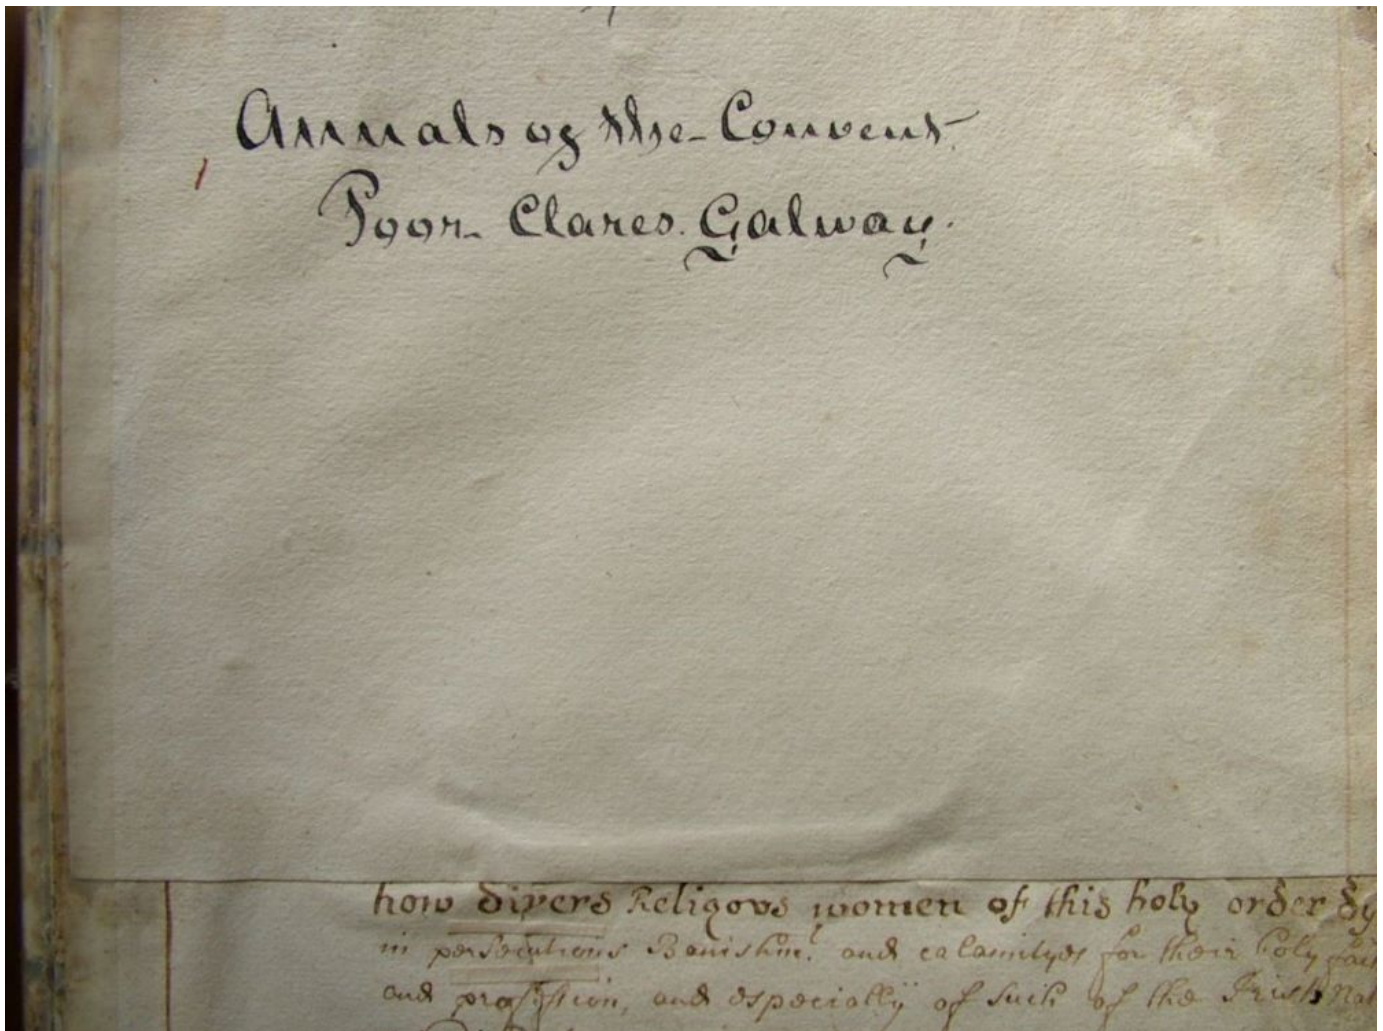 Annals of the Convent
Poor Clares. Galway.
how divers Religovs women of this holy order dy
in persecutions Banishmt. and calamityes for their holy fai
and profession, and especially of such of the Irish Nat